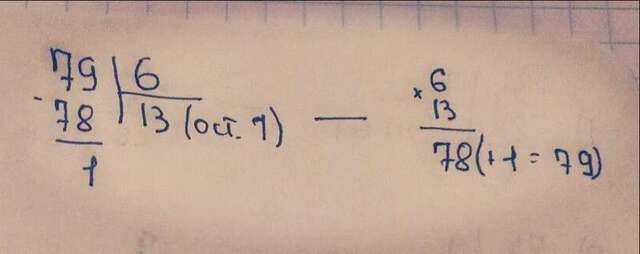 79 6
- 78 13 (ост. 1)
1
—
× 6
13
78 (+1 = 79)